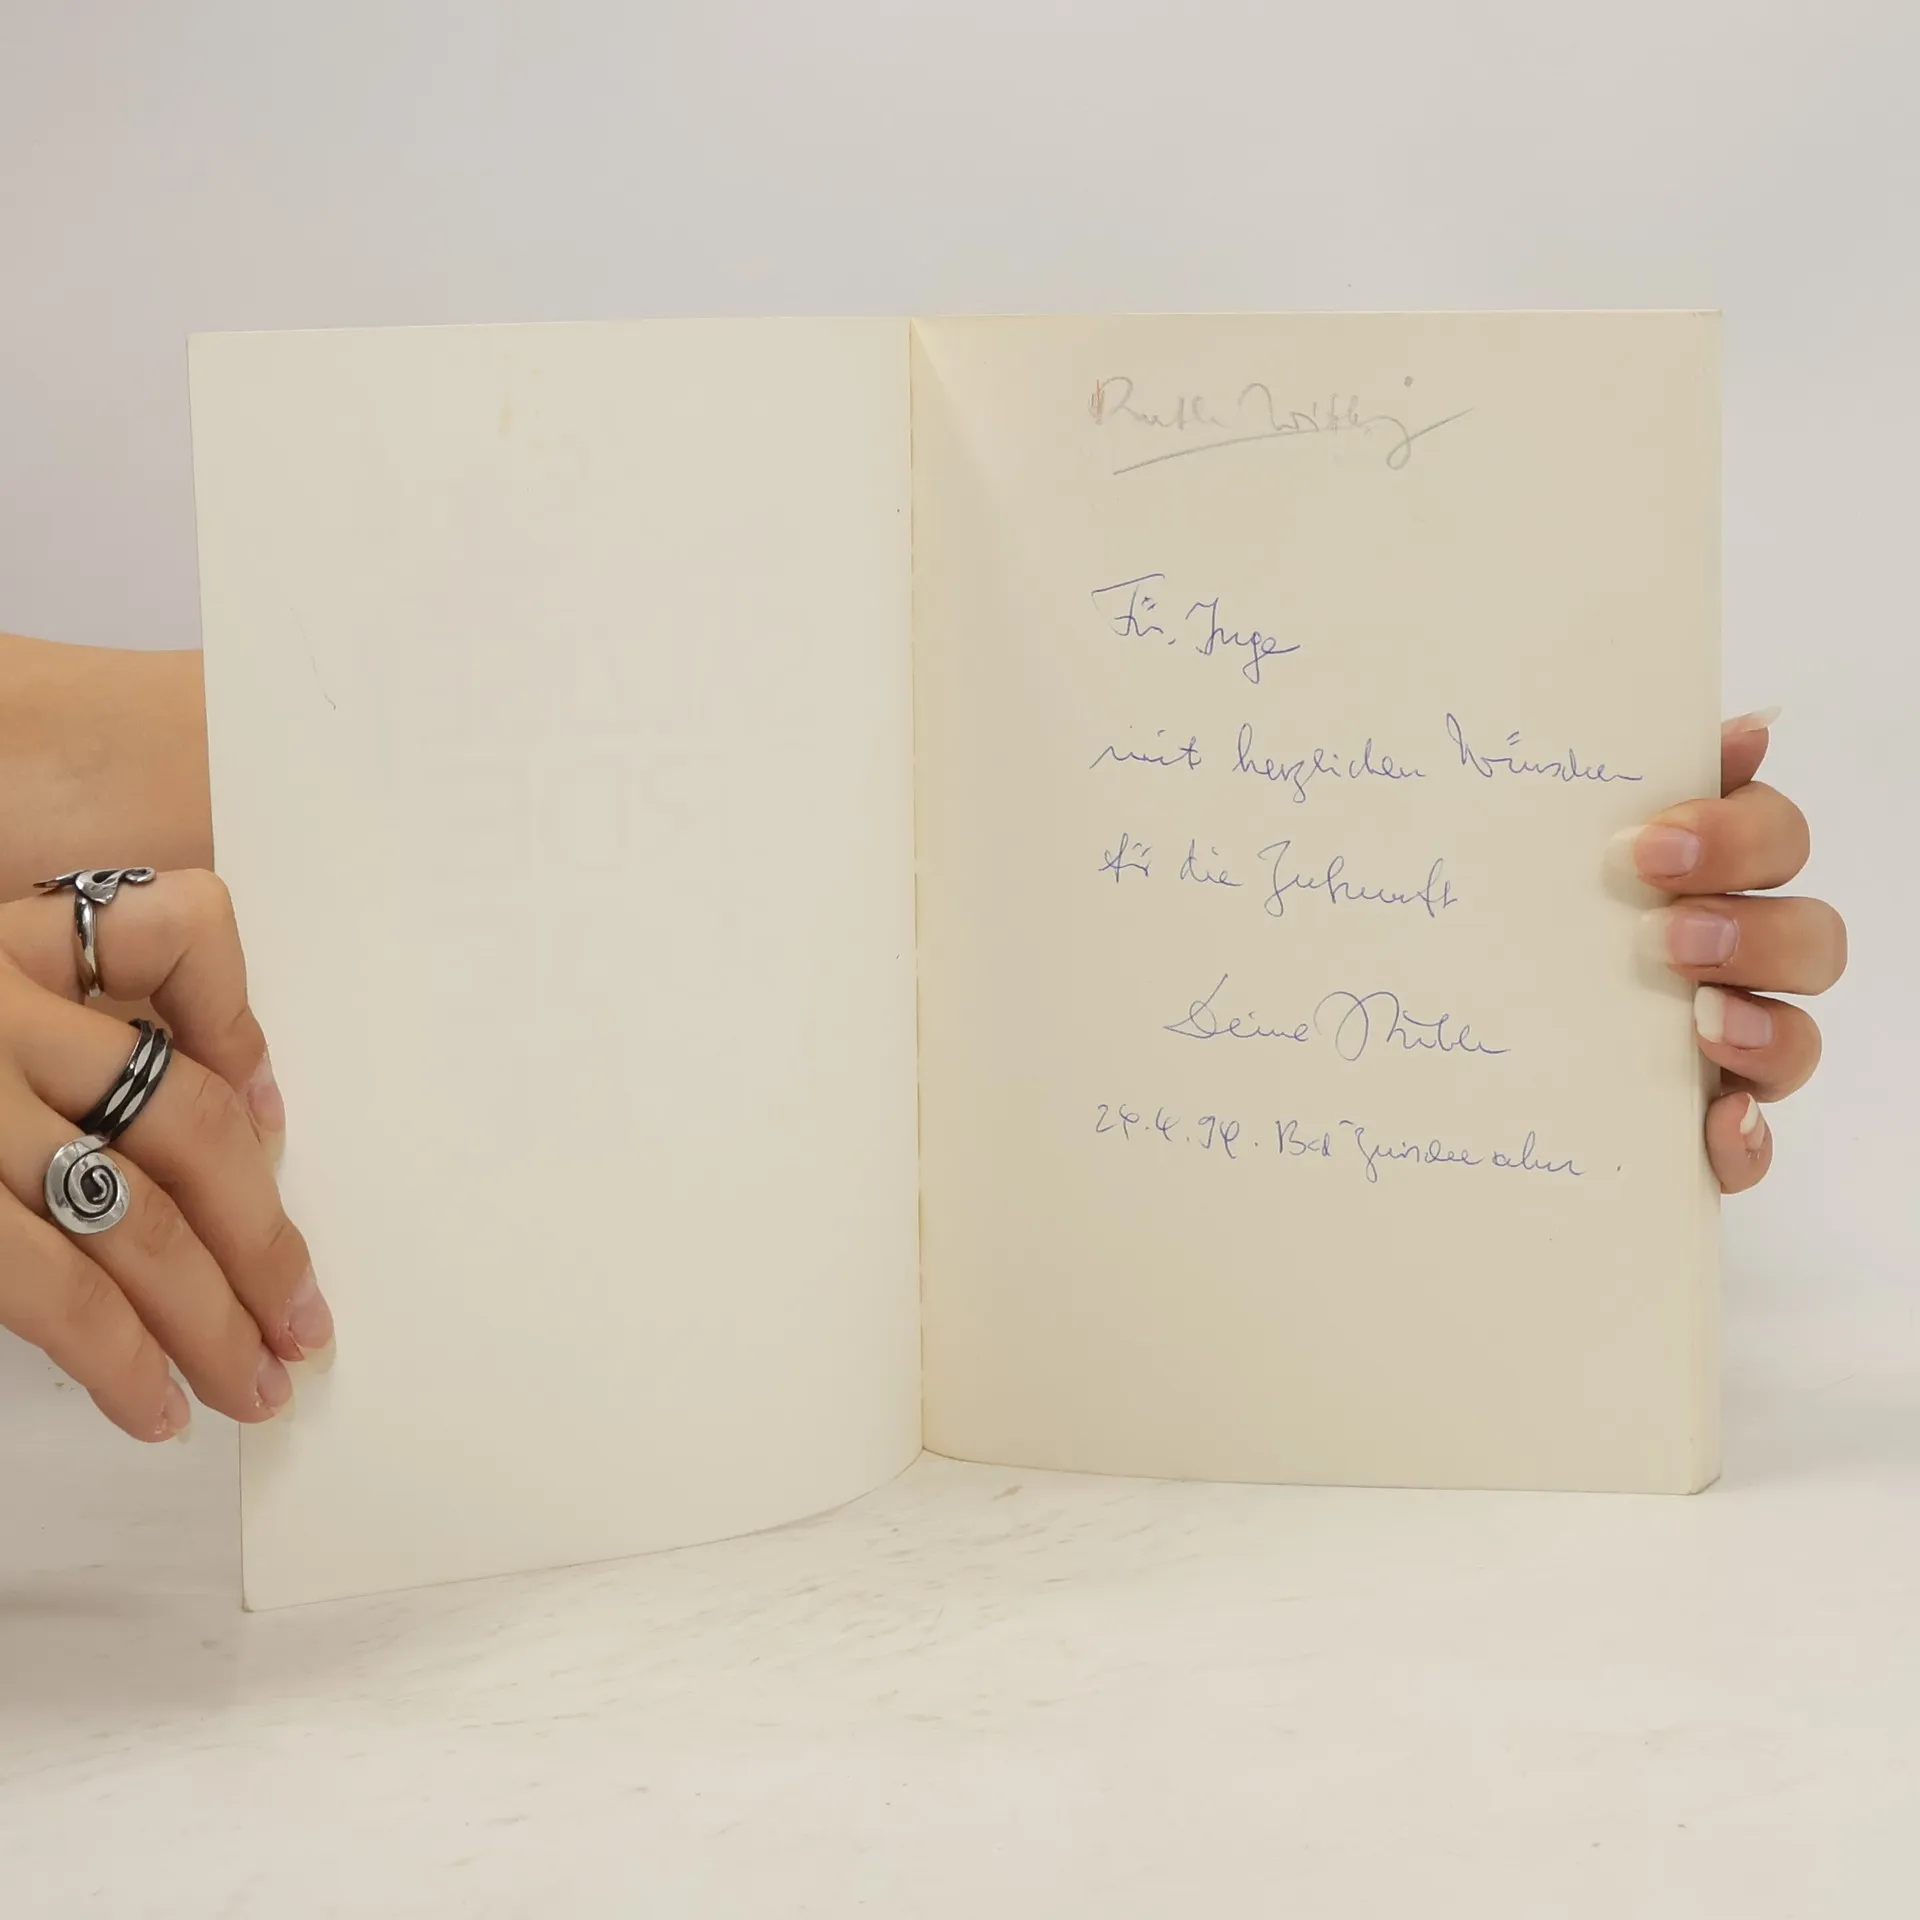 Ruth
Für Inge
mit herzlichen Wünschen
für die Zukunft
Deine
24.4.94. Bad Zwischenahn.